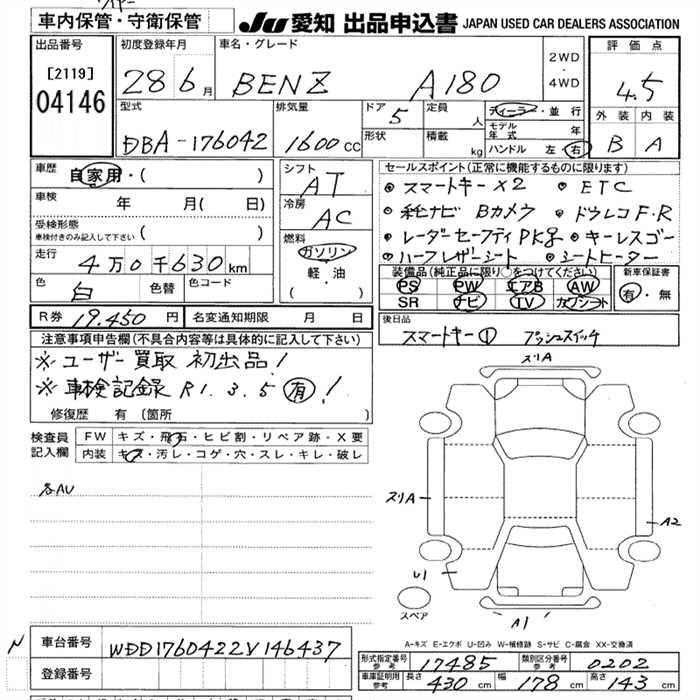 車内保管・守衛保管
JU 愛知 出品申込書 JAPAN USED CAR DEALERS ASSOCIATION
出品番号
[2119]
04146
初度登録年月
28 6月
車名・グレード
BENZ A180
2WD
・
4WD
評価点
4.5
外装 内装
B A
型式
DBA-176042
排気量
1600cc
ドア
5
形状
定員
人
積載
kg
ディーラー・並行
モデル年式 年
ハンドル 左・右
車歴
自家用・( )
車検 年 月( 日)
受検形態
車検付きのみ記入して下さい ( )
走行
4万0千630km
色
白
色替
色コード
R券 19.450円
名変通知期限 月 日
シフト
AT
冷房
AC
燃料
ガソリン
軽・油
( )
セールスポイント(正常に機能するものに限ります)
スマートキー×2 ETC
純正ナビ Bカメラ ドラレコF・R
レーダーセーフティPKG キーレスゴー
ハーフレザーシート シートヒーター
装備品(純正品に限り○をつけてください)
PS PW エアB AW
SR ナビ TV カワシート
新車保証書
有・無
後日品
スマートキー① プッシュスイッチ
注意事項申告欄(不具合内容等は具体的に記入して下さい)
※ユーザー買取 初出品!
※車検記録 R1.3.5 有!
修復歴 有(箇所 )
検査員
記入欄
FW キズ・飛石・ヒビ割・リペア跡・X要
内装 キズ・汚レ・コゲ・穴・スレ・キレ・破レ
各AU
スリA
スリA
A2
U1
A1
スペア
A-キズ E-エクボ U-凹み W-補修跡 S-サビ C-腐食 XX-交換済
N
車台番号 WDD1760422V146437
登録番号
形式指定番号 参考 17485
類別区分番号 参考 0202
車庫証明用 参考 長さ 430cm 幅 178cm 高さ 143cm